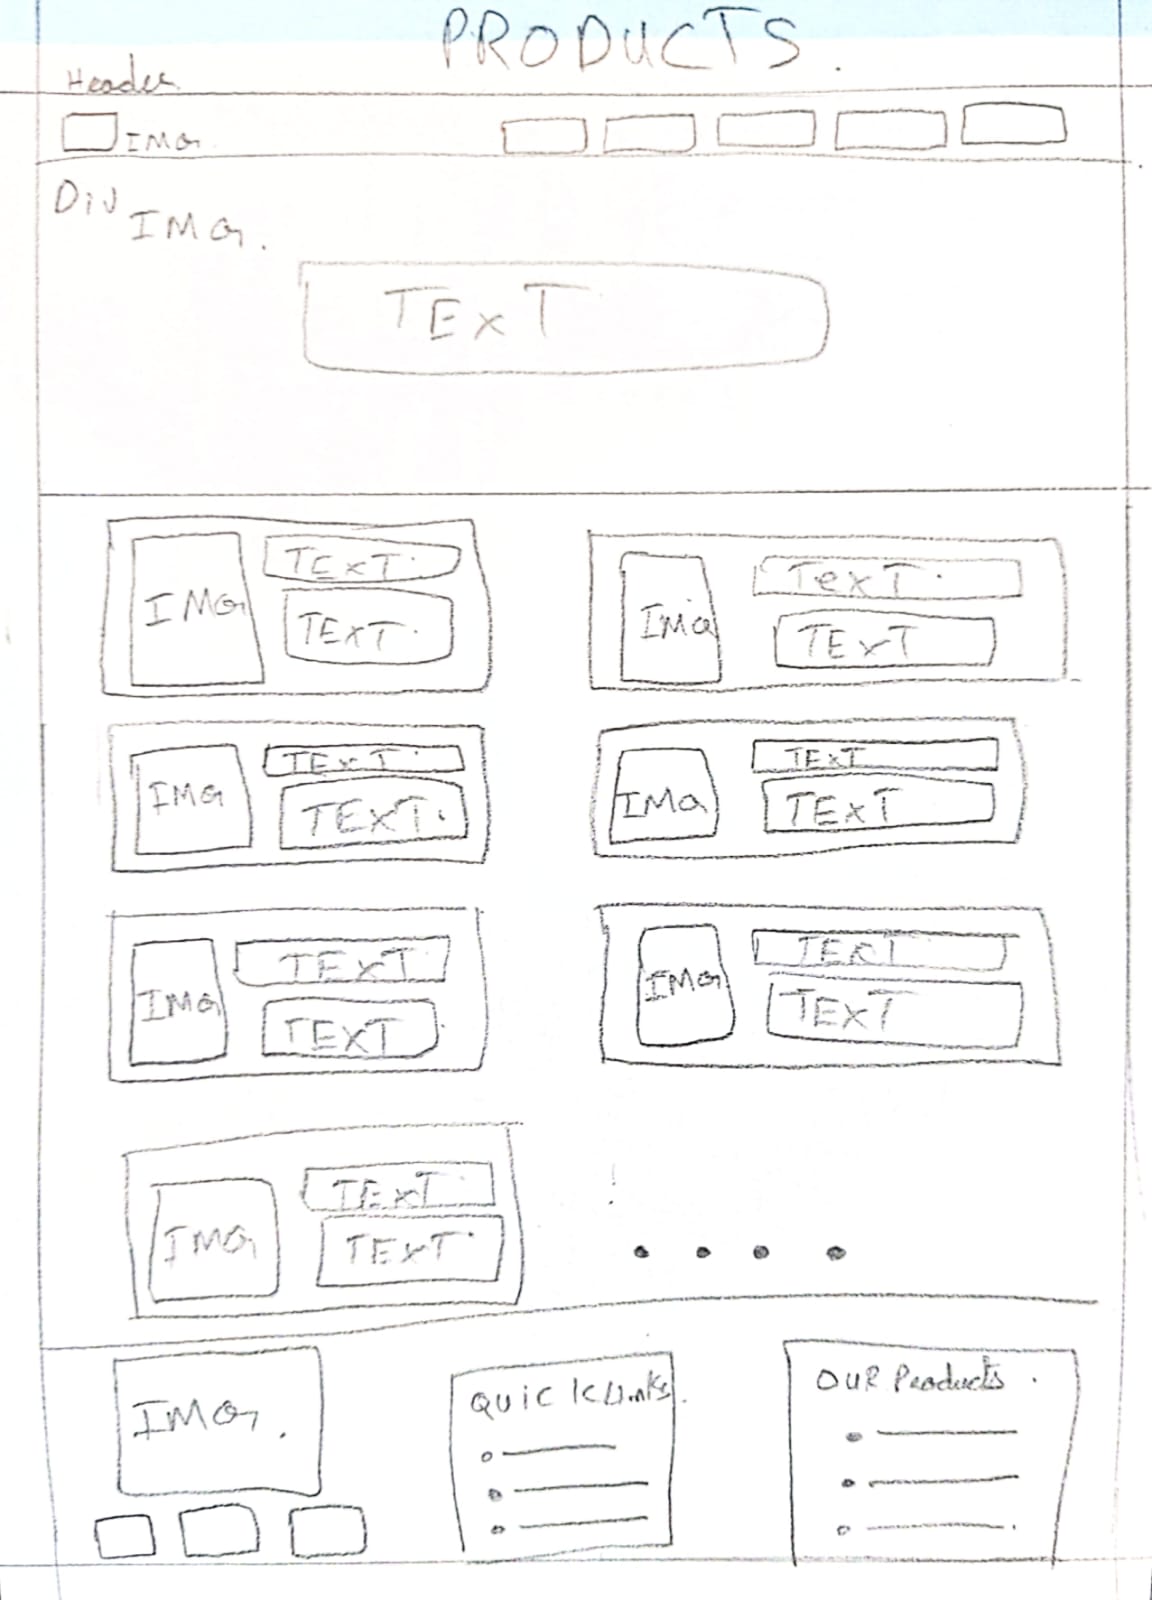 PRODUCTS.
Header
IMG
Div
IMG.
TEXT
IMG
TEXT
TEXT
IMG
TexT
TEXT
IMG
TEXT
TEXT
IMG
TEXT
TEXT
IMG
TEXT
TEXT
IMG
TEXT
TEXT
IMG
TEXT
TEXT
IMG.
QUICK Links
OUR Products